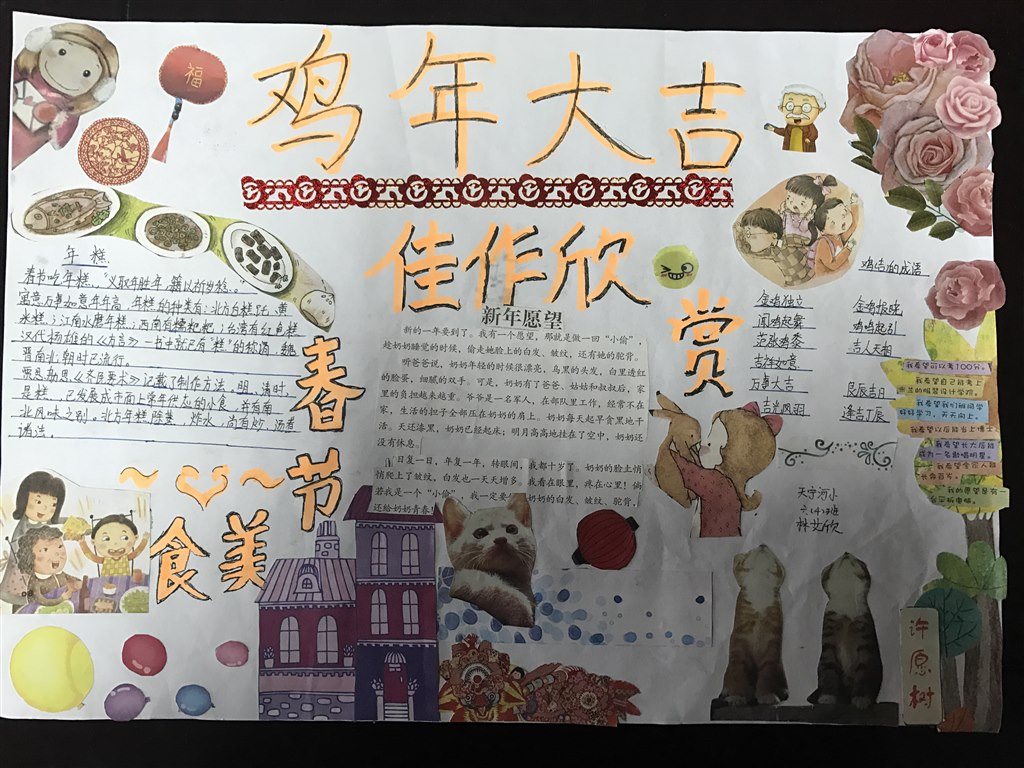 福
鸡年大吉
佳作欣
赏
年糕
春节吃年糕，“义取年胜年，籍以祈岁稔。”
寓意万事如意年年高。年糕的种类有：北方白糕饦、黄
米糕；江南水磨年糕；西南有糯粑粑；台湾有红龟糕
汉代扬雄的《方言》一书中就已有“糕”的称谓，魏
晋南北朝时已流行。
贾思勰《齐民要术》记载了制作方法。明、清时，
是糕，已发展成市面上常年供应的小食，并有南
北风味之别。北方年糕
春
节
食美
新年愿望
新的一年要到了。我有一个愿望，那就是做一回“小偷”，
趁奶奶睡觉的时候，偷走她脸上的白发、皱纹，还有她的驼背。
听爸爸说，奶奶年轻的时候很漂亮，乌黑的头发，白里透红
的脸蛋，细腻的双手。可是，奶奶有了爸爸、姑姑和叔叔后，家
里的负担越来越重。爷爷是一名军人，在部队里工作，经常不在
家，生活的担子全部压在奶奶的肩上。奶奶每天起早贪黑地干
活。天还漆黑，奶奶已经起床；明月高高地挂在了空中，奶奶还
没有休息。
日复一日，年复一年，转眼间，我都十岁了。奶奶的脸上悄
悄爬上了皱纹，白发也一天天增多。我看在眼里，疼在心里！倘
若我是一个“小偷”，我一定要 奶奶的白发、皱纹、驼背，
还给奶奶青春！
鸡的成语
金鸡独立
金鸡报晓
闻鸡起舞
范张鸡黍
吉人天相
吉祥如意
万事大吉
良辰吉日
吉光凤羽
逢吉丁辰
我希望可以考100分。
我希望自己能考上
我希望我们班同学
好好学习，天天向上。
我希望以后能当上博士
我希望长大后能
成为一名歌唱明星。
我希望全家人都
长命百岁。
我的愿望是有一
天宁河小
林艾欣
许
愿
树